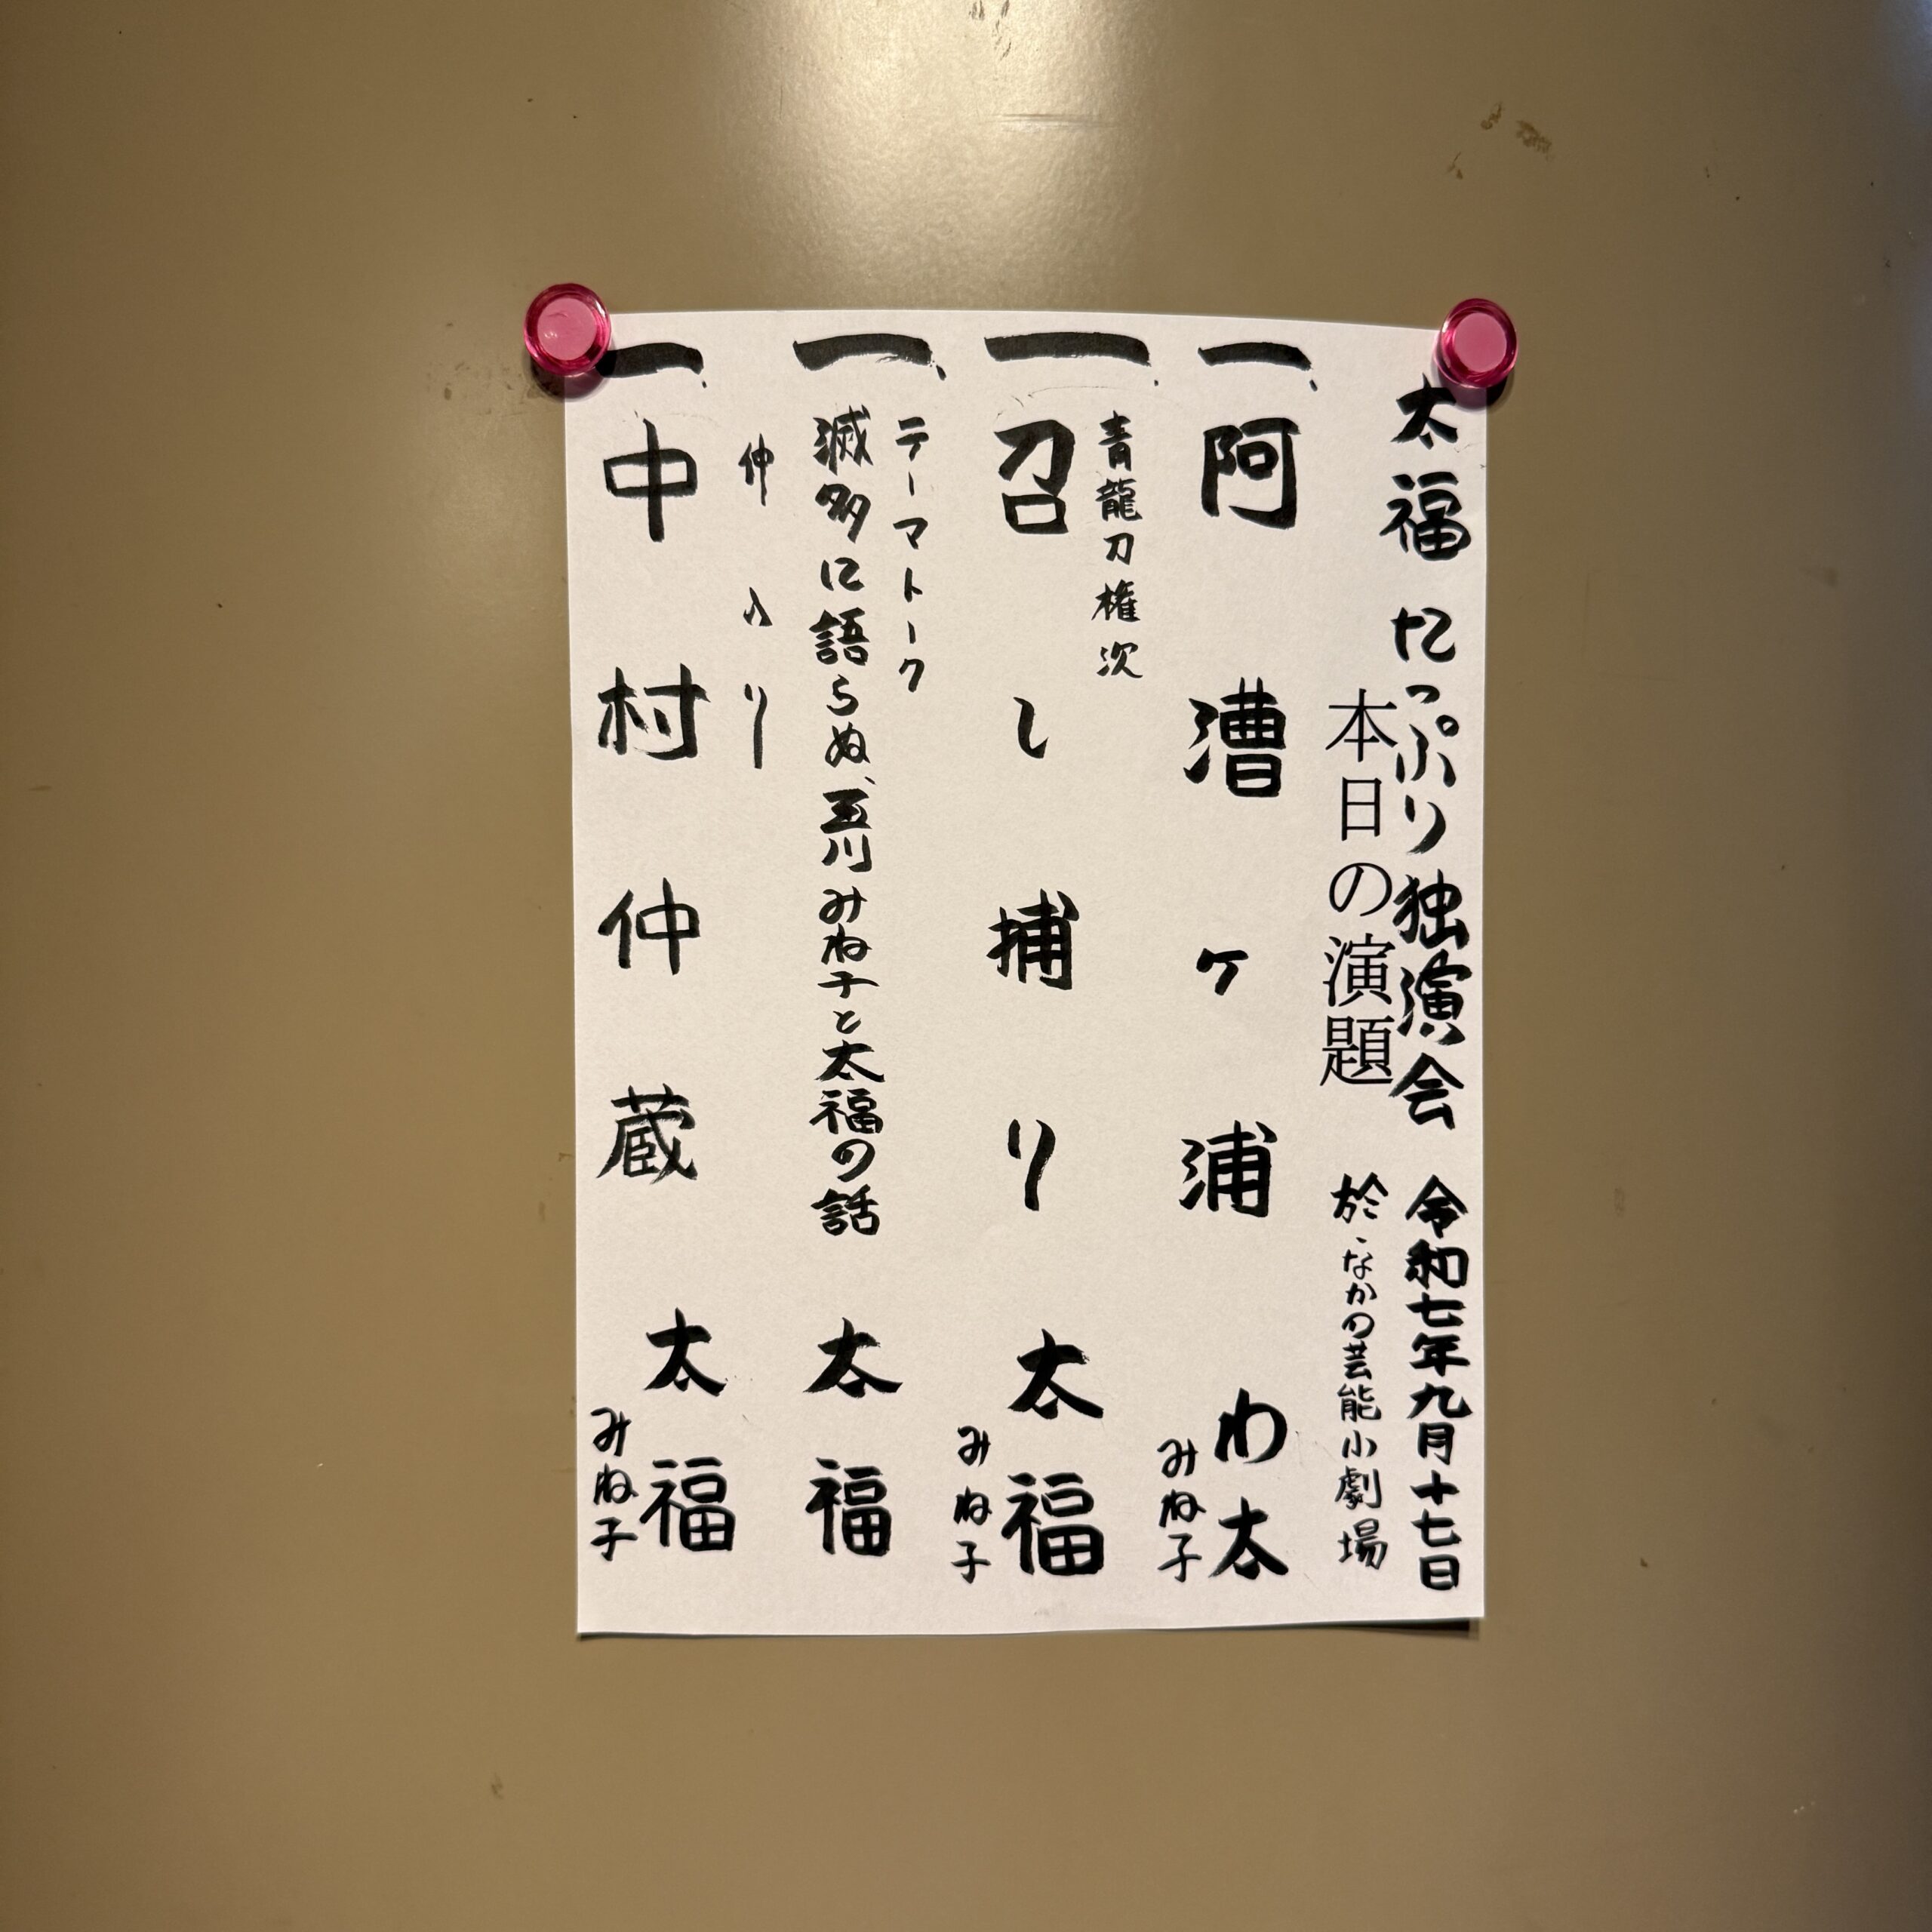 太福たっぷり独演会 令和七年九月十七日
本日の演題 於・なかの芸能小劇場
一、阿漕ヶ浦 わ太
みね子
青龍刀権次
一、召し捕り 太福
みね子
テーマトーク
一、滅多に語らぬ、玉川みね子と太福の話 太福
仲入り
一、中村仲蔵 太福
みね子